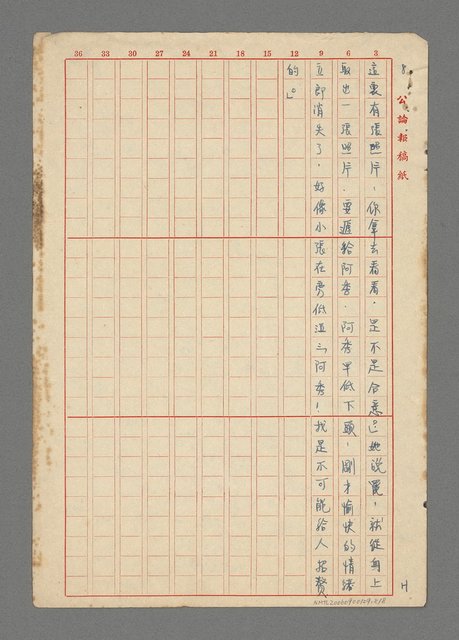 公論報稿紙
8
36 33 30 27 24 21 18 15 12 9 6 3
這裏有張照片，你拿去看看，是不是合意。」她說罷，就從身上
取出一張照片，要遞給阿秀，阿秀早低下頭，剛才愉快的情緒
立即消失了，好像小張在旁低道：「阿秀！我是不可能給人招贅
的。」